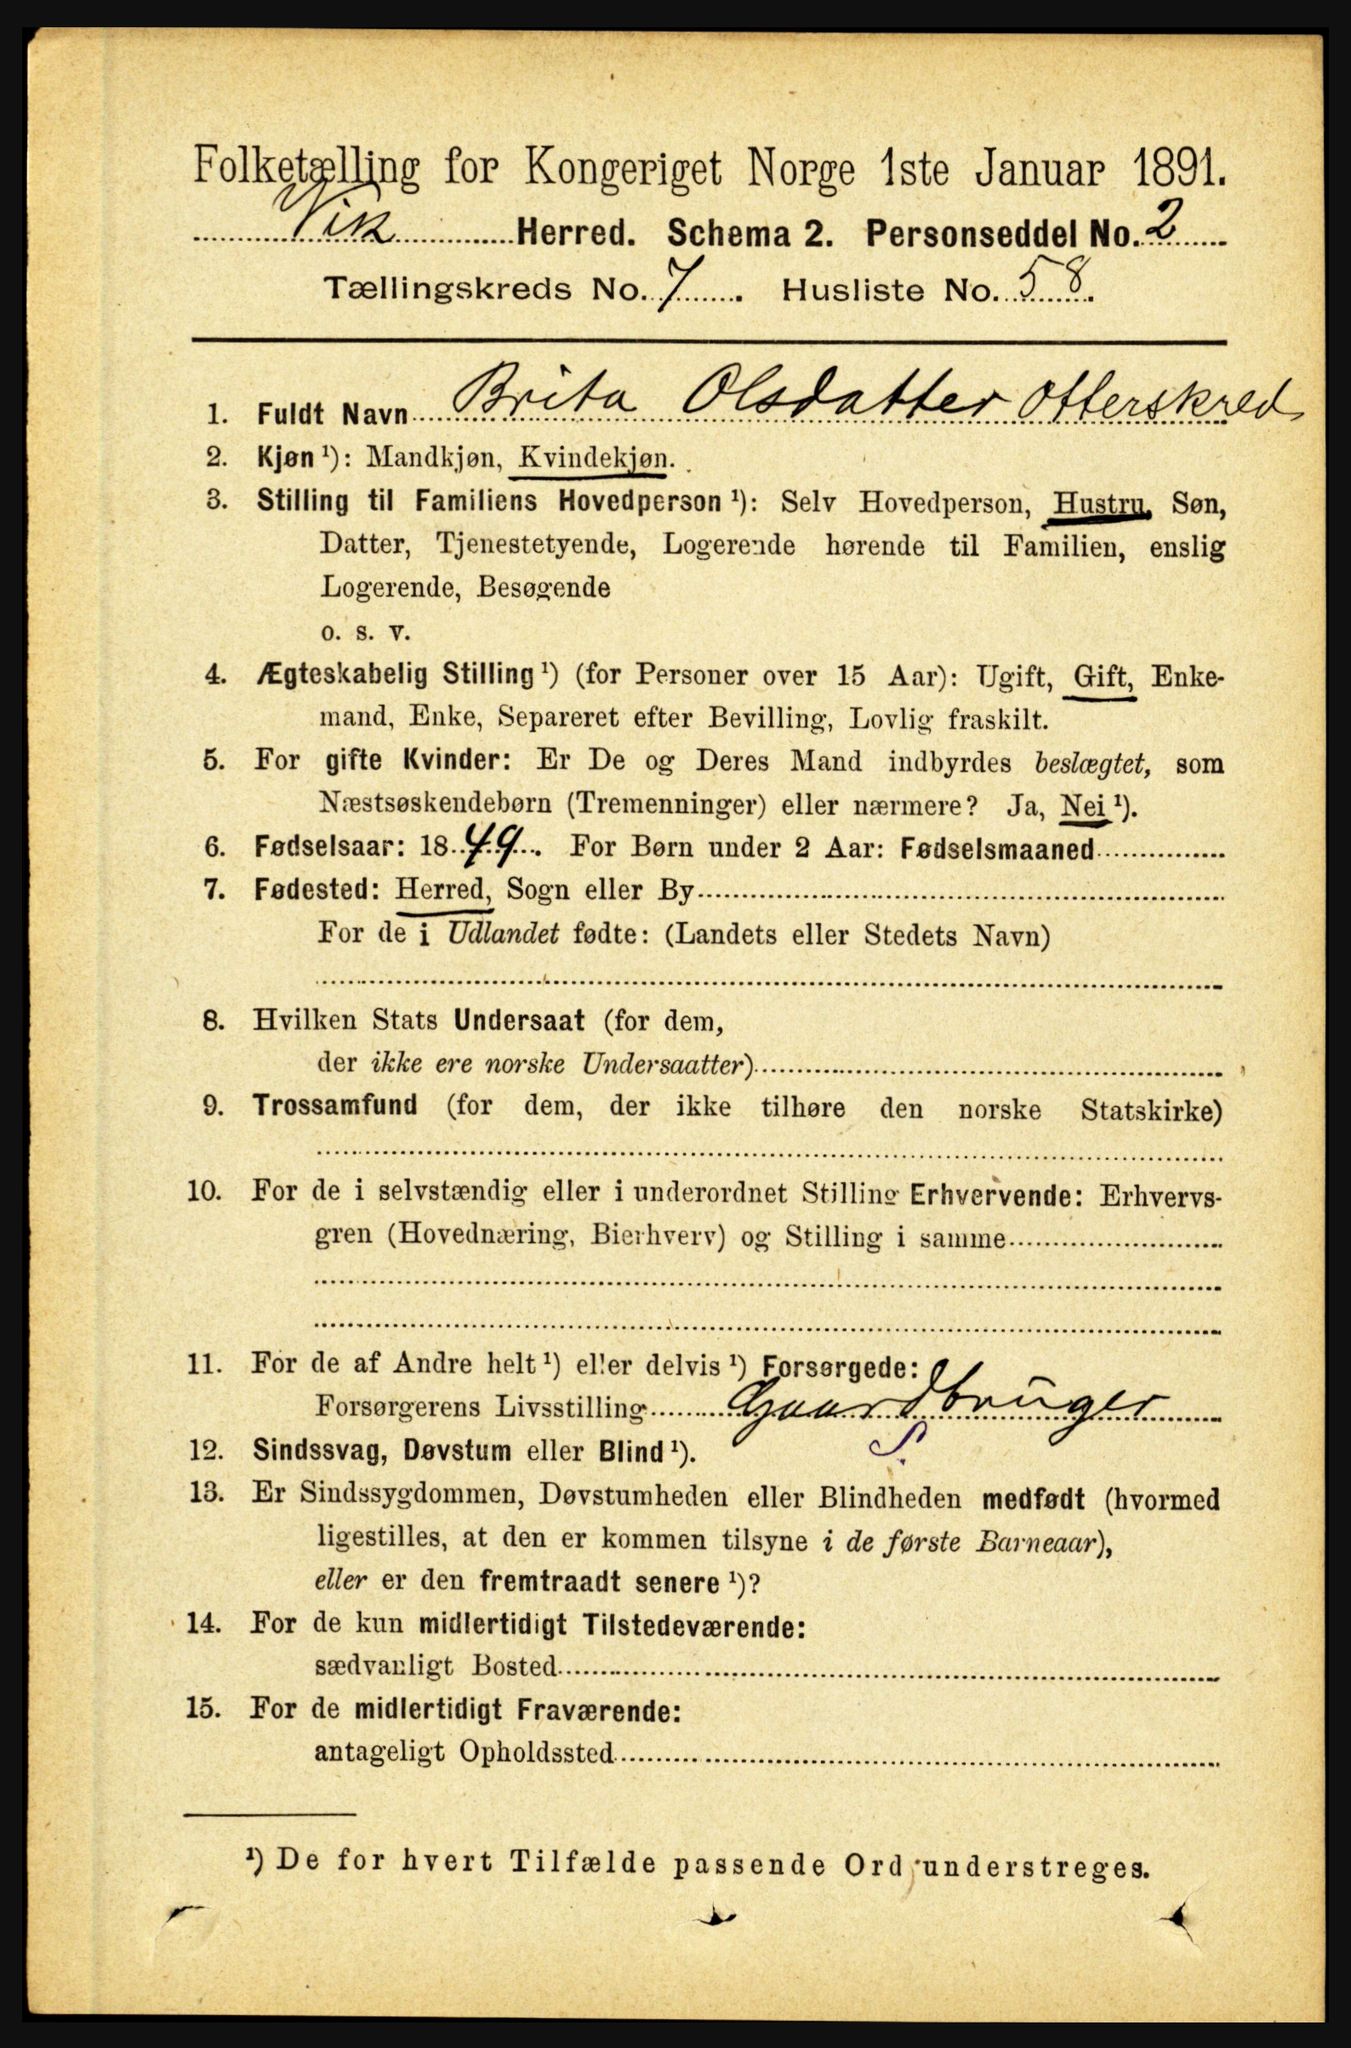 Folketælling for Kongeriget Norge 1ste Januar 1891.
Vik Herred. Schema 2. Personseddel No. 2
Tællingskreds No. 7. Husliste No. 58.
1. Fuldt Navn Brita Olsdatter Otterskred
2. Kjøn ¹): Mandkjøn, Kvindekjøn.
3. Stilling til Familiens Hovedperson ¹): Selv Hovedperson, Hustru, Søn,
Datter, Tjenestetyende, Logerende hørende til Familien, enslig
Logerende, Besøgende
o. s. v.
4. Ægteskabelig Stilling ¹) (for Personer over 15 Aar): Ugift, Gift, Enke-
mand, Enke, Separeret efter Bevilling, Lovlig fraskilt.
5. For gifte Kvinder: Er De og Deres Mand indbyrdes beslægtet, som
Næstsøskendebørn (Tremenninger) eller nærmere? Ja, Nei ¹).
6. Fødselsaar: 1849. For Børn under 2 Aar: Fødselsmaaned
7. Fødested: Herred, Sogn eller By
For de i Udlandet fødte: (Landets eller Stedets Navn)
8. Hvilken Stats Undersaat (for dem,
der ikke ere norske Undersaatter)
9. Trossamfund (for dem, der ikke tilhøre den norske Statskirke)
10. For de i selvstændig eller i underordnet Stilling Erhvervende: Erhvervs-
gren (Hovednæring, Bierhverv) og Stilling i samme
11. For de af Andre helt ¹) eller delvis ¹) Forsørgede:
Forsørgerens Livsstilling Gaardbruger
12. Sindssvag, Døvstum eller Blind ¹). S.
13. Er Sindssygdommen, Døvstumheden eller Blindheden medfødt (hvormed
ligestilles, at den er kommen tilsyne i de første Barneaar),
eller er den fremtraadt senere ¹)?
14. For de kun midlertidigt Tilstedeværende:
sædvanligt Bosted
15. For de midlertidigt Fraværende:
antageligt Opholdssted
¹) De for hvert Tilfælde passende Ord understreges.